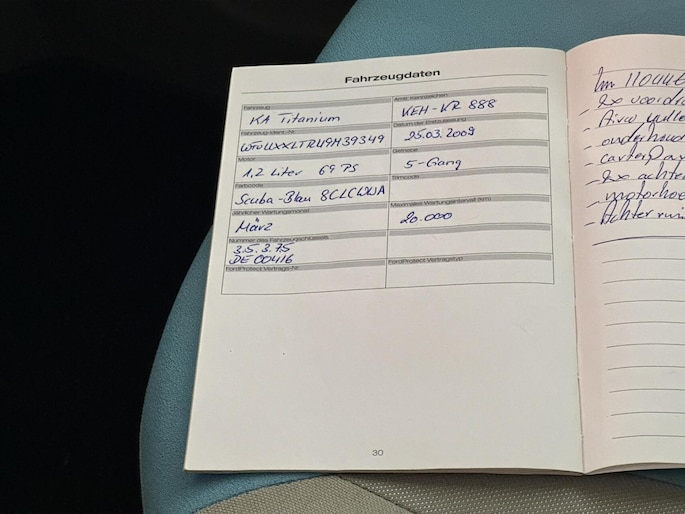 Fahrzeugdaten
Fahrzeug
KA Titanium
Amtl. Kennzeichen
KEH-KR 888
Fahrzeug-Ident.-Nr.
Datum der Erstzulassung
25.03.2009
Motor
1,2 Liter 69 PS
Getriebe
5-Gang
Farbcode
Scuba-Blau 8CLCWWA
Trimcode
Jährlicher Wartungsmonat
März
Maximales Wartungsintervall (km)
20.000
Nummer des Fahrzeugschlüssels
3.5.3.75
DE 00416
FordProtect Vertrags-Nr.
FordProtect Vertragstyp
30
- 2x
- Airco
- 2x achter
- Achter